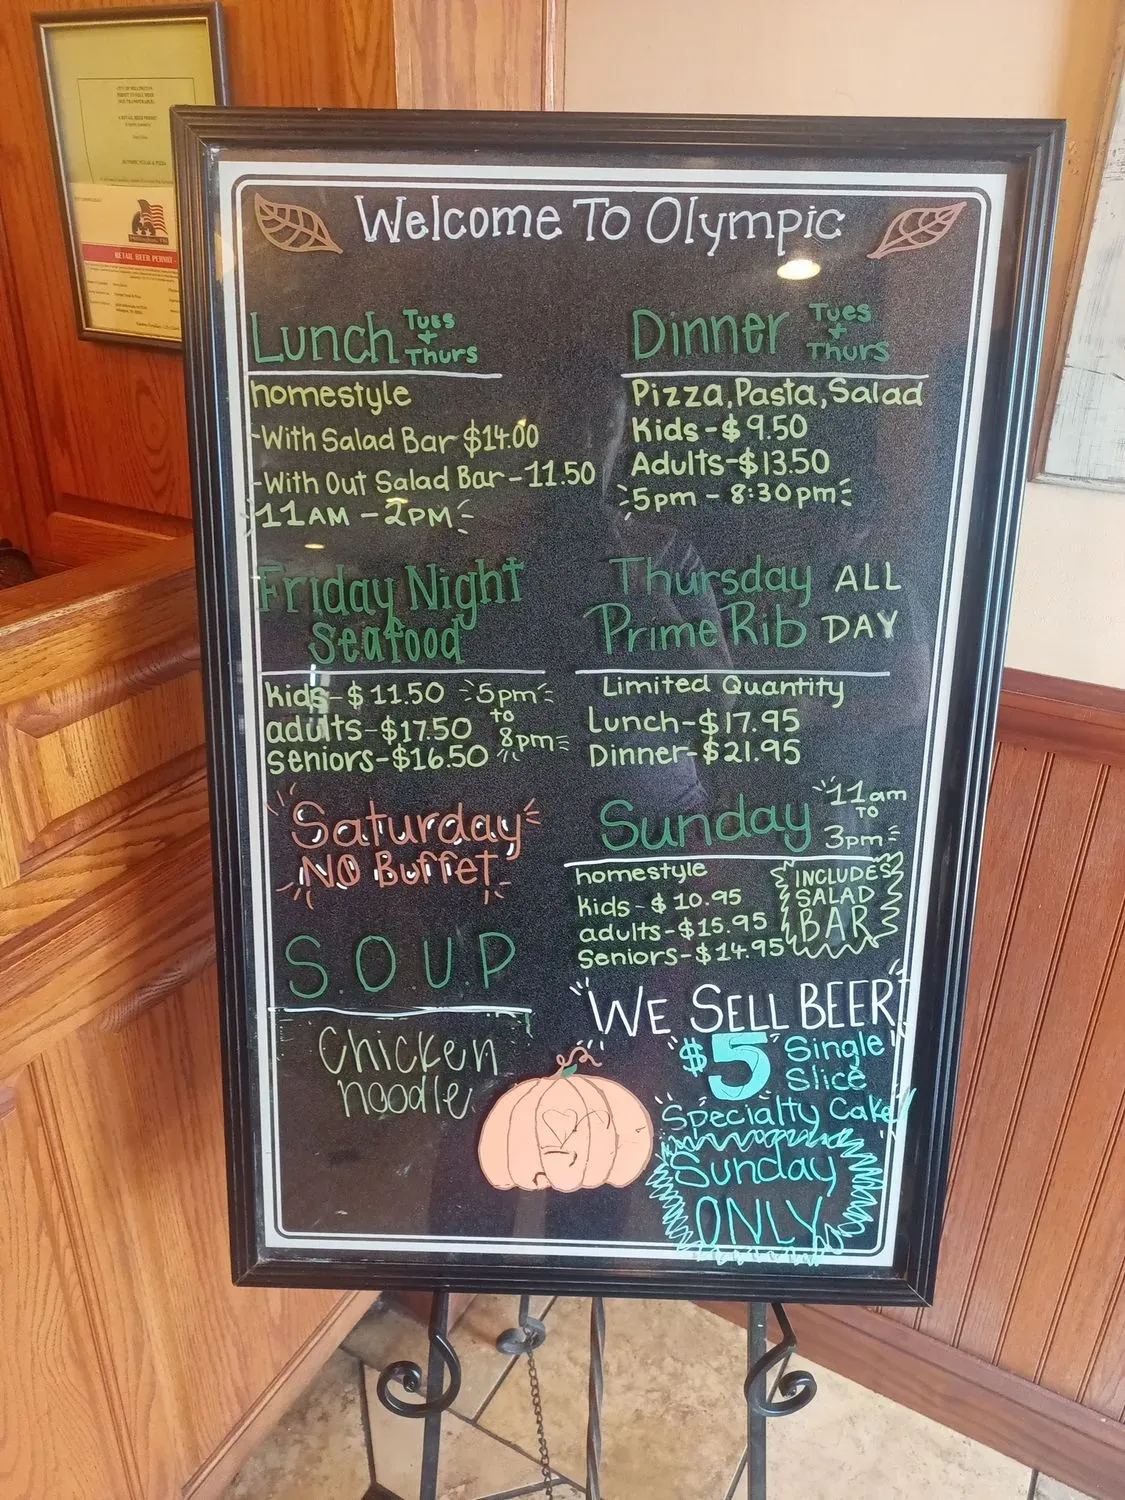 CITY OF MILLINGTON
PERMIT TO SELL BEER
A RETAIL BEER PERMIT
OLYMPIC STEAK & PIZZA
RETAIL BEER PERMIT
Welcome To Olympic
Lunch Tues + Thurs
homestyle
-With Salad Bar $14.00
-With Out Salad Bar - 11.50
11AM - 2PM
Dinner Tues + Thurs
Pizza, Pasta, Salad
Kids - $9.50
Adults - $13.50
5pm - 8:30pm
Friday Night
Seafood
Kids - $11.50 5pm
to
adults - $17.50 8pm
Seniors - $16.50
Thursday ALL
Prime Rib DAY
Limited Quantity
Lunch - $17.95
Dinner - $21.95
Saturday
NO Buffet
Sunday 11am
TO
3pm
homestyle
Kids - $10.95
adults - $15.95
Seniors - $14.95
INCLUDES
SALAD
BAR
S.O.U.P
Chicken
noodle
WE SELL BEER
$5 Single
Slice
Specialty Cake
Sunday
ONLY